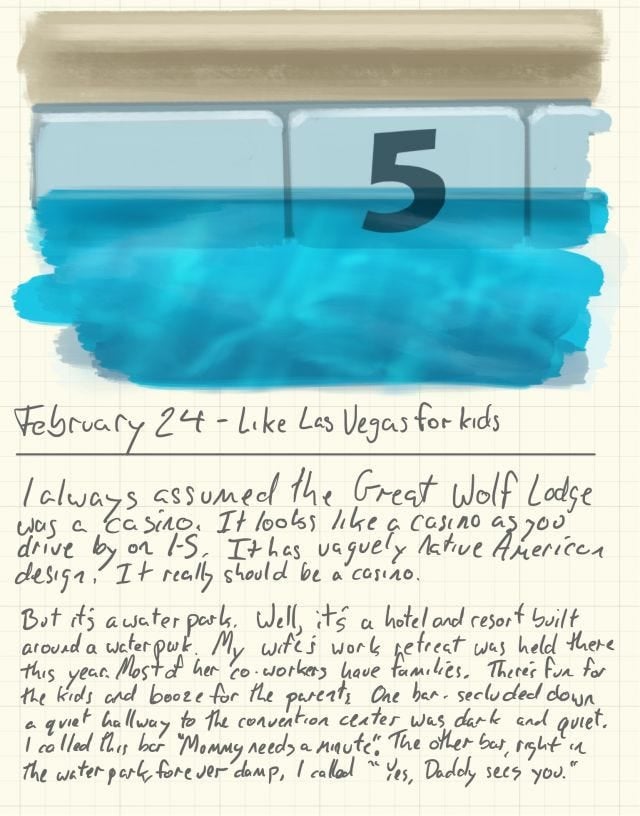 5
February 24 - Like Las Vegas for kids
I always assumed the Great Wolf Lodge
was a casino. It looks like a casino as you
drive by on I-5. It has vaguely Native American
design. It really should be a casino.
But it's a water park. Well, it's a hotel and resort built
around a water park. My wife's work retreat was held there
this year. Most of her co-workers have families. There's fun for
the kids and booze for the parents. One bar, secluded down
a quiet hallway to the convention center was dark and quiet.
I called this bar "Mommy needs a minute". The other bar, right in
the water park, forever damp, I called "Yes, Daddy sees you."